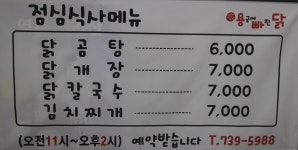 점심식사메뉴 용구에빠진닭
닭곰탕 6,000
닭개장 7,000
닭칼국수 7,000
김치찌개 7,000
(오전11시~오후2시) 예약받습니다 T.739-5988